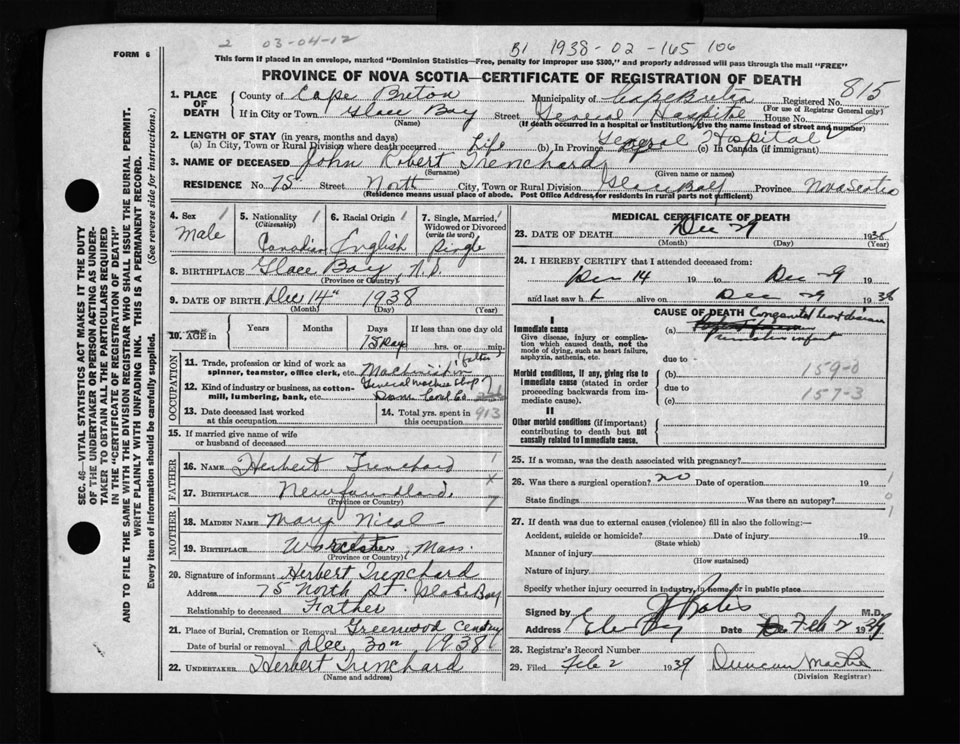 FORM 6
2 03-04-12
B1 1938-02-165106
This form if placed in an envelope, marked "Dominion Statistics—Free, penalty for improper use $300," and properly addressed will pass through the mail "FREE"
PROVINCE OF NOVA SCOTIA—CERTIFICATE OF REGISTRATION OF DEATH
1. PLACE OF DEATH County of Cape Breton (Name) Municipality of Cape Breton Registered No. 815
(For use of Registrar General only)
If in City or Town Glace Bay (Name) Street General Hospital House No.
(If death occurred in a hospital or institution, give the name instead of street and number)
2. LENGTH OF STAY (in years, months and days) General Hospital
(a) In City, Town or Rural Division where death occurred Life (b) In Province (c) In Canada (if immigrant)
3. NAME OF DECEASED John Robert Trenchard
(Surname) (Given name or names)
RESIDENCE No. 75 Street North City, Town or Rural Division Glace Bay Province Nova Scotia
(Residence means usual place of abode. Post Office Address for residents in rural parts not sufficient)
4. Sex Male
5. Nationality (Citizenship) Canadian
6. Racial Origin English
7. Single, Married, Widowed or Divorced (write the word) Single
8. BIRTHPLACE Glace Bay, N.S.
(Province or Country)
9. DATE OF BIRTH Dec 14th 1938
(Month) (Day) (Year)
10. AGE in Years Months Days If less than one day old
15 Days hrs. or min.
OCCUPATION
11. Trade, profession or kind of work as spinner, teamster, office clerk, etc. Machinist (father)
12. Kind of industry or business, as cotton-mill, lumbering, bank, etc. General Machine Shop
Dom Coal Co
13. Date deceased last worked at this occupation
14. Total yrs. spent in this occupation 913
15. If married give name of wife or husband of deceased
FATHER
16. NAME Herbert Trenchard
17. BIRTHPLACE Newfoundland
(Province or Country)
MOTHER
18. MAIDEN NAME Mary Nicol
19. BIRTHPLACE Worcester, Mass.
(Province or Country)
20. Signature of informant Herbert Trenchard
Address 75 North St. Glace Bay
Relationship to deceased Father
21. Place of Burial, Cremation or Removal Greenwood Cemetery
Date of burial or removal Dec 30th 1938
22. UNDERTAKER Herbert Trenchard
(Name and address)
MEDICAL CERTIFICATE OF DEATH
23. DATE OF DEATH Dec 29 1938
(Month) (Day) (Year)
24. I HEREBY CERTIFY that I attended deceased from:
Dec 14 19 to Dec 29 19
and last saw h alive on Dec 29 1938
CAUSE OF DEATH
I
Immediate cause
Give disease, injury or complication which caused death, not the mode of dying, such as heart failure, asphyxia, asthenia, etc.
(a) Congenital heart disease
Premature infant
due to
Morbid conditions, if any, giving rise to immediate cause (stated in order proceeding backwards from immediate cause).
(b) 159-0
due to
(c) 157-3
II
Other morbid conditions (if important) contributing to death but not causally related to immediate cause.
25. If a woman, was the death associated with pregnancy?
26. Was there a surgical operation? no Date of operation 19
State findings Was there an autopsy?
27. If death was due to external causes (violence) fill in also the following:—
Accident, suicide or homicide? Date of injury 19
(State which)
Manner of injury
(How sustained)
Nature of injury
Specify whether injury occurred in industry, in home, or in public place
Signed by M.D.
Address Date Feb 2 1939
28. Registrar's Record Number
29. Filed Feb 2 1939 Duncan
(Division Registrar)
SEC. 46—VITAL STATISTICS ACT MAKES IT THE DUTY OF THE UNDERTAKER OR PERSON ACTING AS UNDERTAKER TO OBTAIN ALL THE PARTICULARS REQUIRED IN THE "CERTIFICATE OF REGISTRATION OF DEATH" AND TO FILE THE SAME WITH THE DIVISION REGISTRAR WHO SHALL ISSUE THE BURIAL PERMIT.
WRITE PLAINLY WITH UNFADING INK. THIS IS A PERMANENT RECORD.
Every item of information should be carefully supplied. (See reverse side for instructions.)